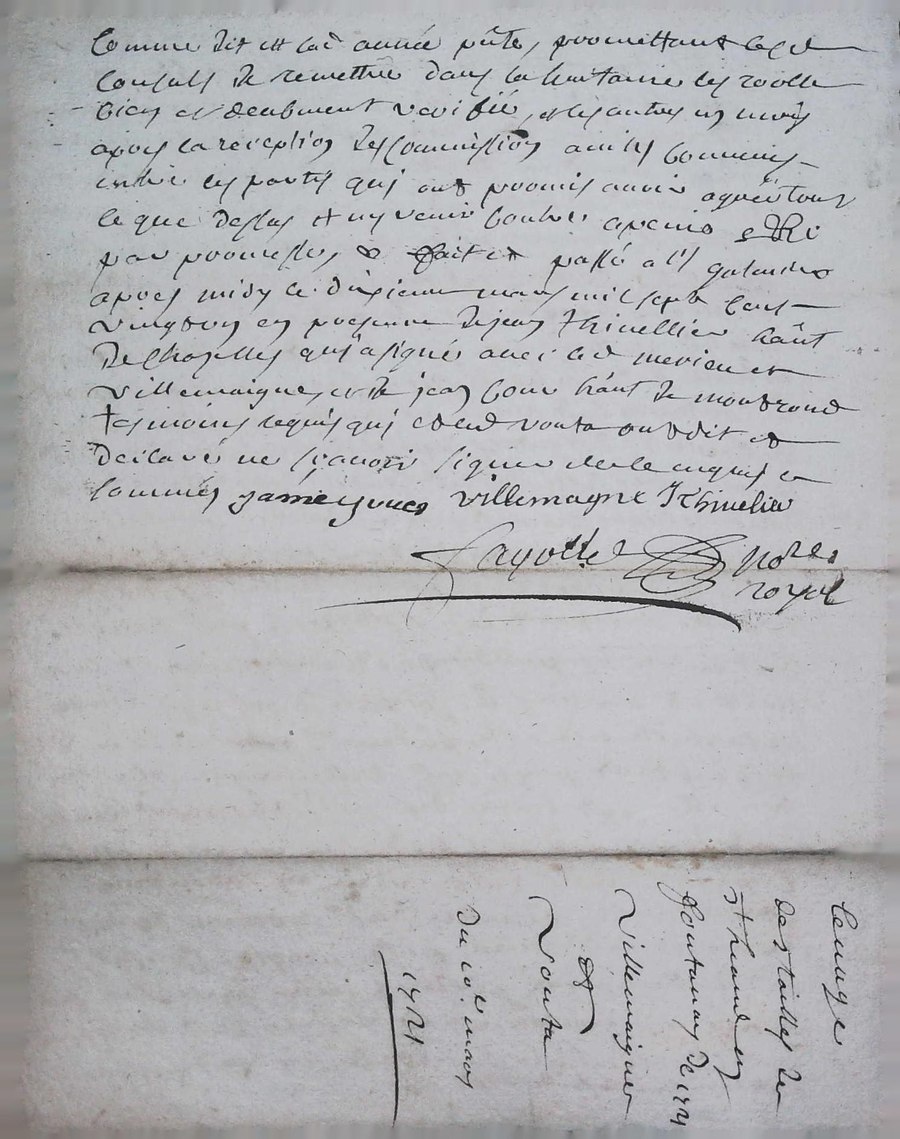 Comme dit est lad année pnte, promettant lesd
Consuls de remettre dans la huitaine les rolle
bien et deubment verifié, et les autres un mois
apres la reception des commissions ainsi convenus
entre les partys qui ont promis avoir agreé tout
ce que dessus et ny venir contre apeine
par promesses, & fait et passé a St galmier
apres midy le dixieme mars mil sept cent
vingt un en presence de jean thivellier hãnt
de Chazelles qui a signé avec led merieu et
villemaigne, et de jean hãnt de montrond
tesmoins requis qui et led vouta ont dit et
declaré ne sçavoir signer de ce enquis et
sommés villemagne J thivelier
fayolle no.re
royal
levage
des tailles de
st haond en
fontanay de 1721
Villemaigne
et
Vouta
du 10e mars
1721